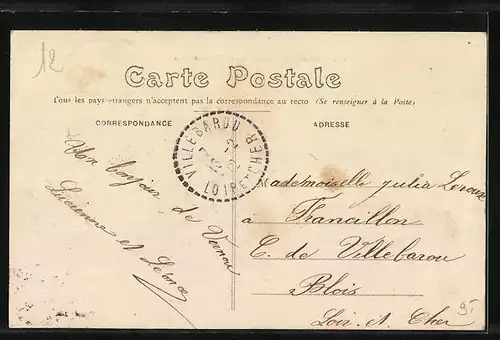 12
Carte Postale
Tous les pays étrangers n'acceptent pas la correspondance au recto (Se renseigner à la Poste)
CORRESPONDANCE
ADRESSE
VILLEBAROU
LOIR-ET-CHER
Mon bonjour de Vernou
Lucienne et Léonce
Mademoiselle Julia Leroux
à Francillon
C. de Villebarou
Blois
Loir et Cher
95